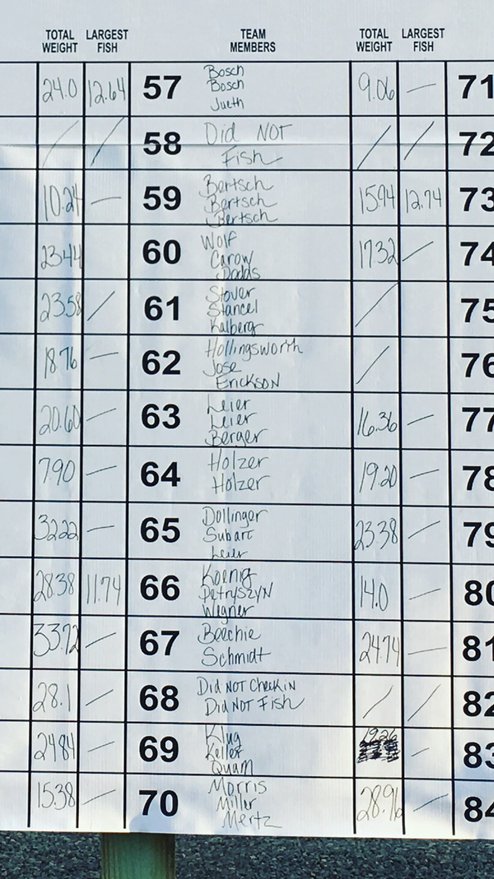 TOTAL WEIGHT LARGEST FISH TEAM MEMBERS TOTAL WEIGHT LARGEST FISH
24.0 12.64 57 Bosch 9.06 — 71
Bosch
Jueth
/ / 58 Did NOT / / 72
Fish
10.24 — 59 Bertsch 15.94 12.74 73
Bertsch
Bertsch
23.44 60 Wolf 17.32 / 74
Carow
Dodds
23.58 / 61 Stover / 75
Stancel
Kalberg
18.76 — 62 Hollingsworth / 76
Jose
Erickson
20.60 — 63 Leier 16.36 — 77
Leier
Berger
7.90 — 64 Holzer 19.20 — 78
Holzer
32.22 — 65 Dollinger 23.38 / 79
Subart
Leier
28.38 11.74 66 Koenig 14.0 — 80
Petryszyn
Wegner
33.72 / 67 Beechie 24.74 — 81
Schmidt
28.1 / 68 Did NOT Check iN / / 82
Did NOT Fish
24.84 — 69 Klug 19.26 — 83
Keller
Quam
15.38 — 70 Morris 28.96 — 84
Miller
Mertz